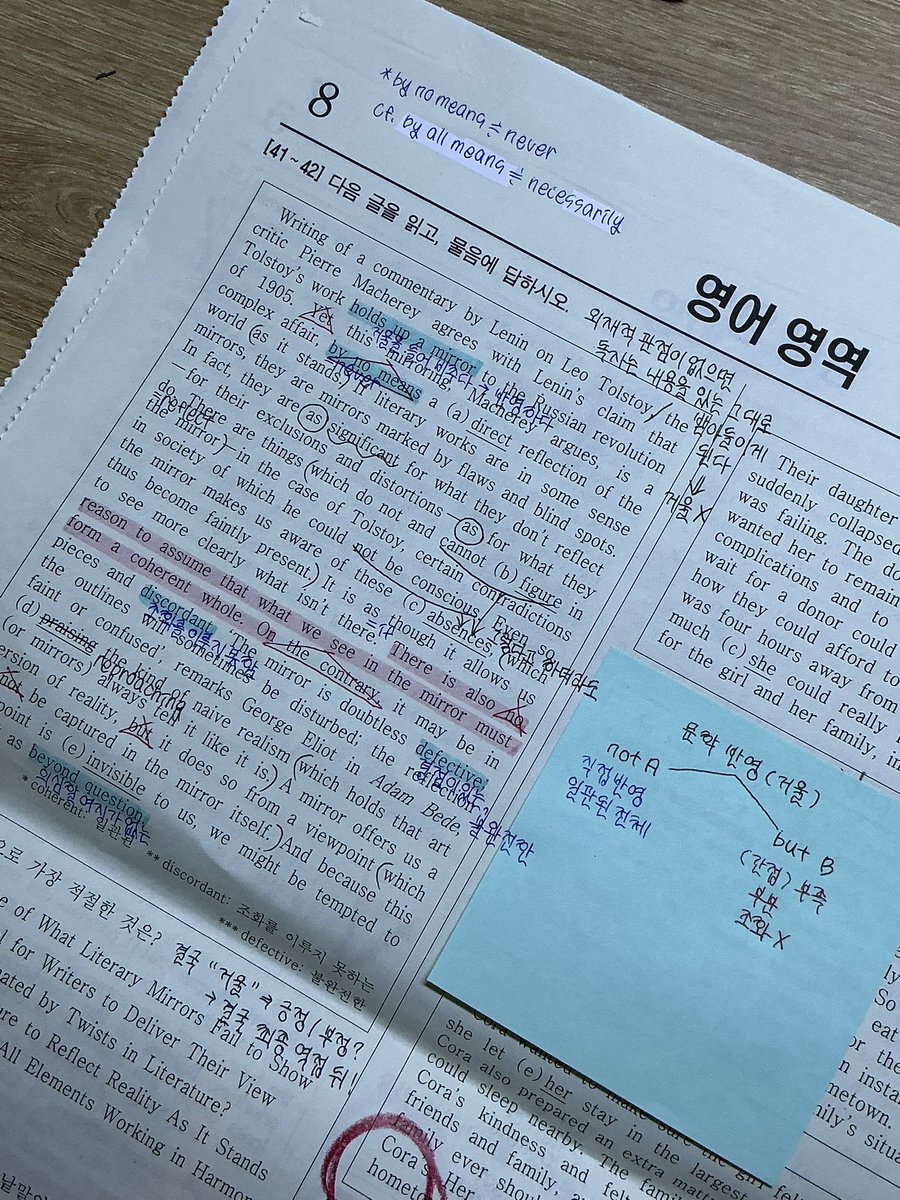 8
*by no means ≒ never
cf. by all means ≒ necessarily
영어 영역
[41~42] 다음 글을 읽고, 물음에 답하시오.
외재적 관점이 없으면
독자는 내용을 있는 그대로
받아들이게
된다
↓
거울 X
Writing of a commentary by Lenin on Leo Tolstoy, the
critic Pierre Macherey agrees with Lenin's claim that
Tolstoy's work holds up a mirror to the Russian revolution
of 1905. Yet this mirroring, Macherey argues, is a
complex affair, by no means a (a) direct reflection of the
never
world (as it stands;) literary works are in some sense
mirrors, they are mirrors marked by flaws and blind spots.
In fact, they are as significant for what they don't reflect
—for their exclusions and distortions as for what they
do. There are things (which do not and cannot (b) figure in
reflect
the mirror) — in the case of Tolstoy, certain contradictions
in society of which he could not be conscious. Even so,
the mirror makes us aware of these (c) absences, (which
thus become faintly present.) It is as though it allows us
to see more clearly what isn't there. There is also no
reason to assume that what we see in the mirror must
form a coherent whole. On the contrary, it may be in
pieces and discordant. The mirror is doubtless defective;
the outlines will sometimes be disturbed; the reflection
faint or confused, remarks George Eliot in Adam Bede,
(d) praising the kind of naive realism (which holds that art
(or mirrors) always tell it like it is.) A mirror offers us a
version of reality, but it does so from a viewpoint (which
be captured in the mirror itself.) And because this
point is (e) invisible to us, we might be tempted to
as beyond question.
* coherent: 일관된 ** discordant: 조화를 이루지 못하는
*** defective: 불완전한
불완전한
문학 반영 (거울)
not A
직접반영
일관된 전체
but B
(간접) 부족
부분
조화 X
으로 가장 적절한 것은?
결국 "거울" → 긍정/부정?
→ 결국 최종 역접 뒤!
e of What Literary Mirrors Fail to Show
for Writers to Deliver Their View
ated by Twists in Literature?
ure to Reflect Reality As It Stands
All Elements Working in Harmon
낱말이
Their daughter
suddenly collapsed
was failing. The do
wanted her to remain
complications and to
wait for a donor could
how they could afford to
was four hours away from
much (c) she could really
for the girl and her family, in
she let (e) her stay in the largest
Cora also prepared an extra mat
could sleep nearby. The fam
Cora's kindness and felt
friends and family, a
family ever shoul
Cora's Her
hometo
So
eat
or the
n instan
metown.
ily's situa